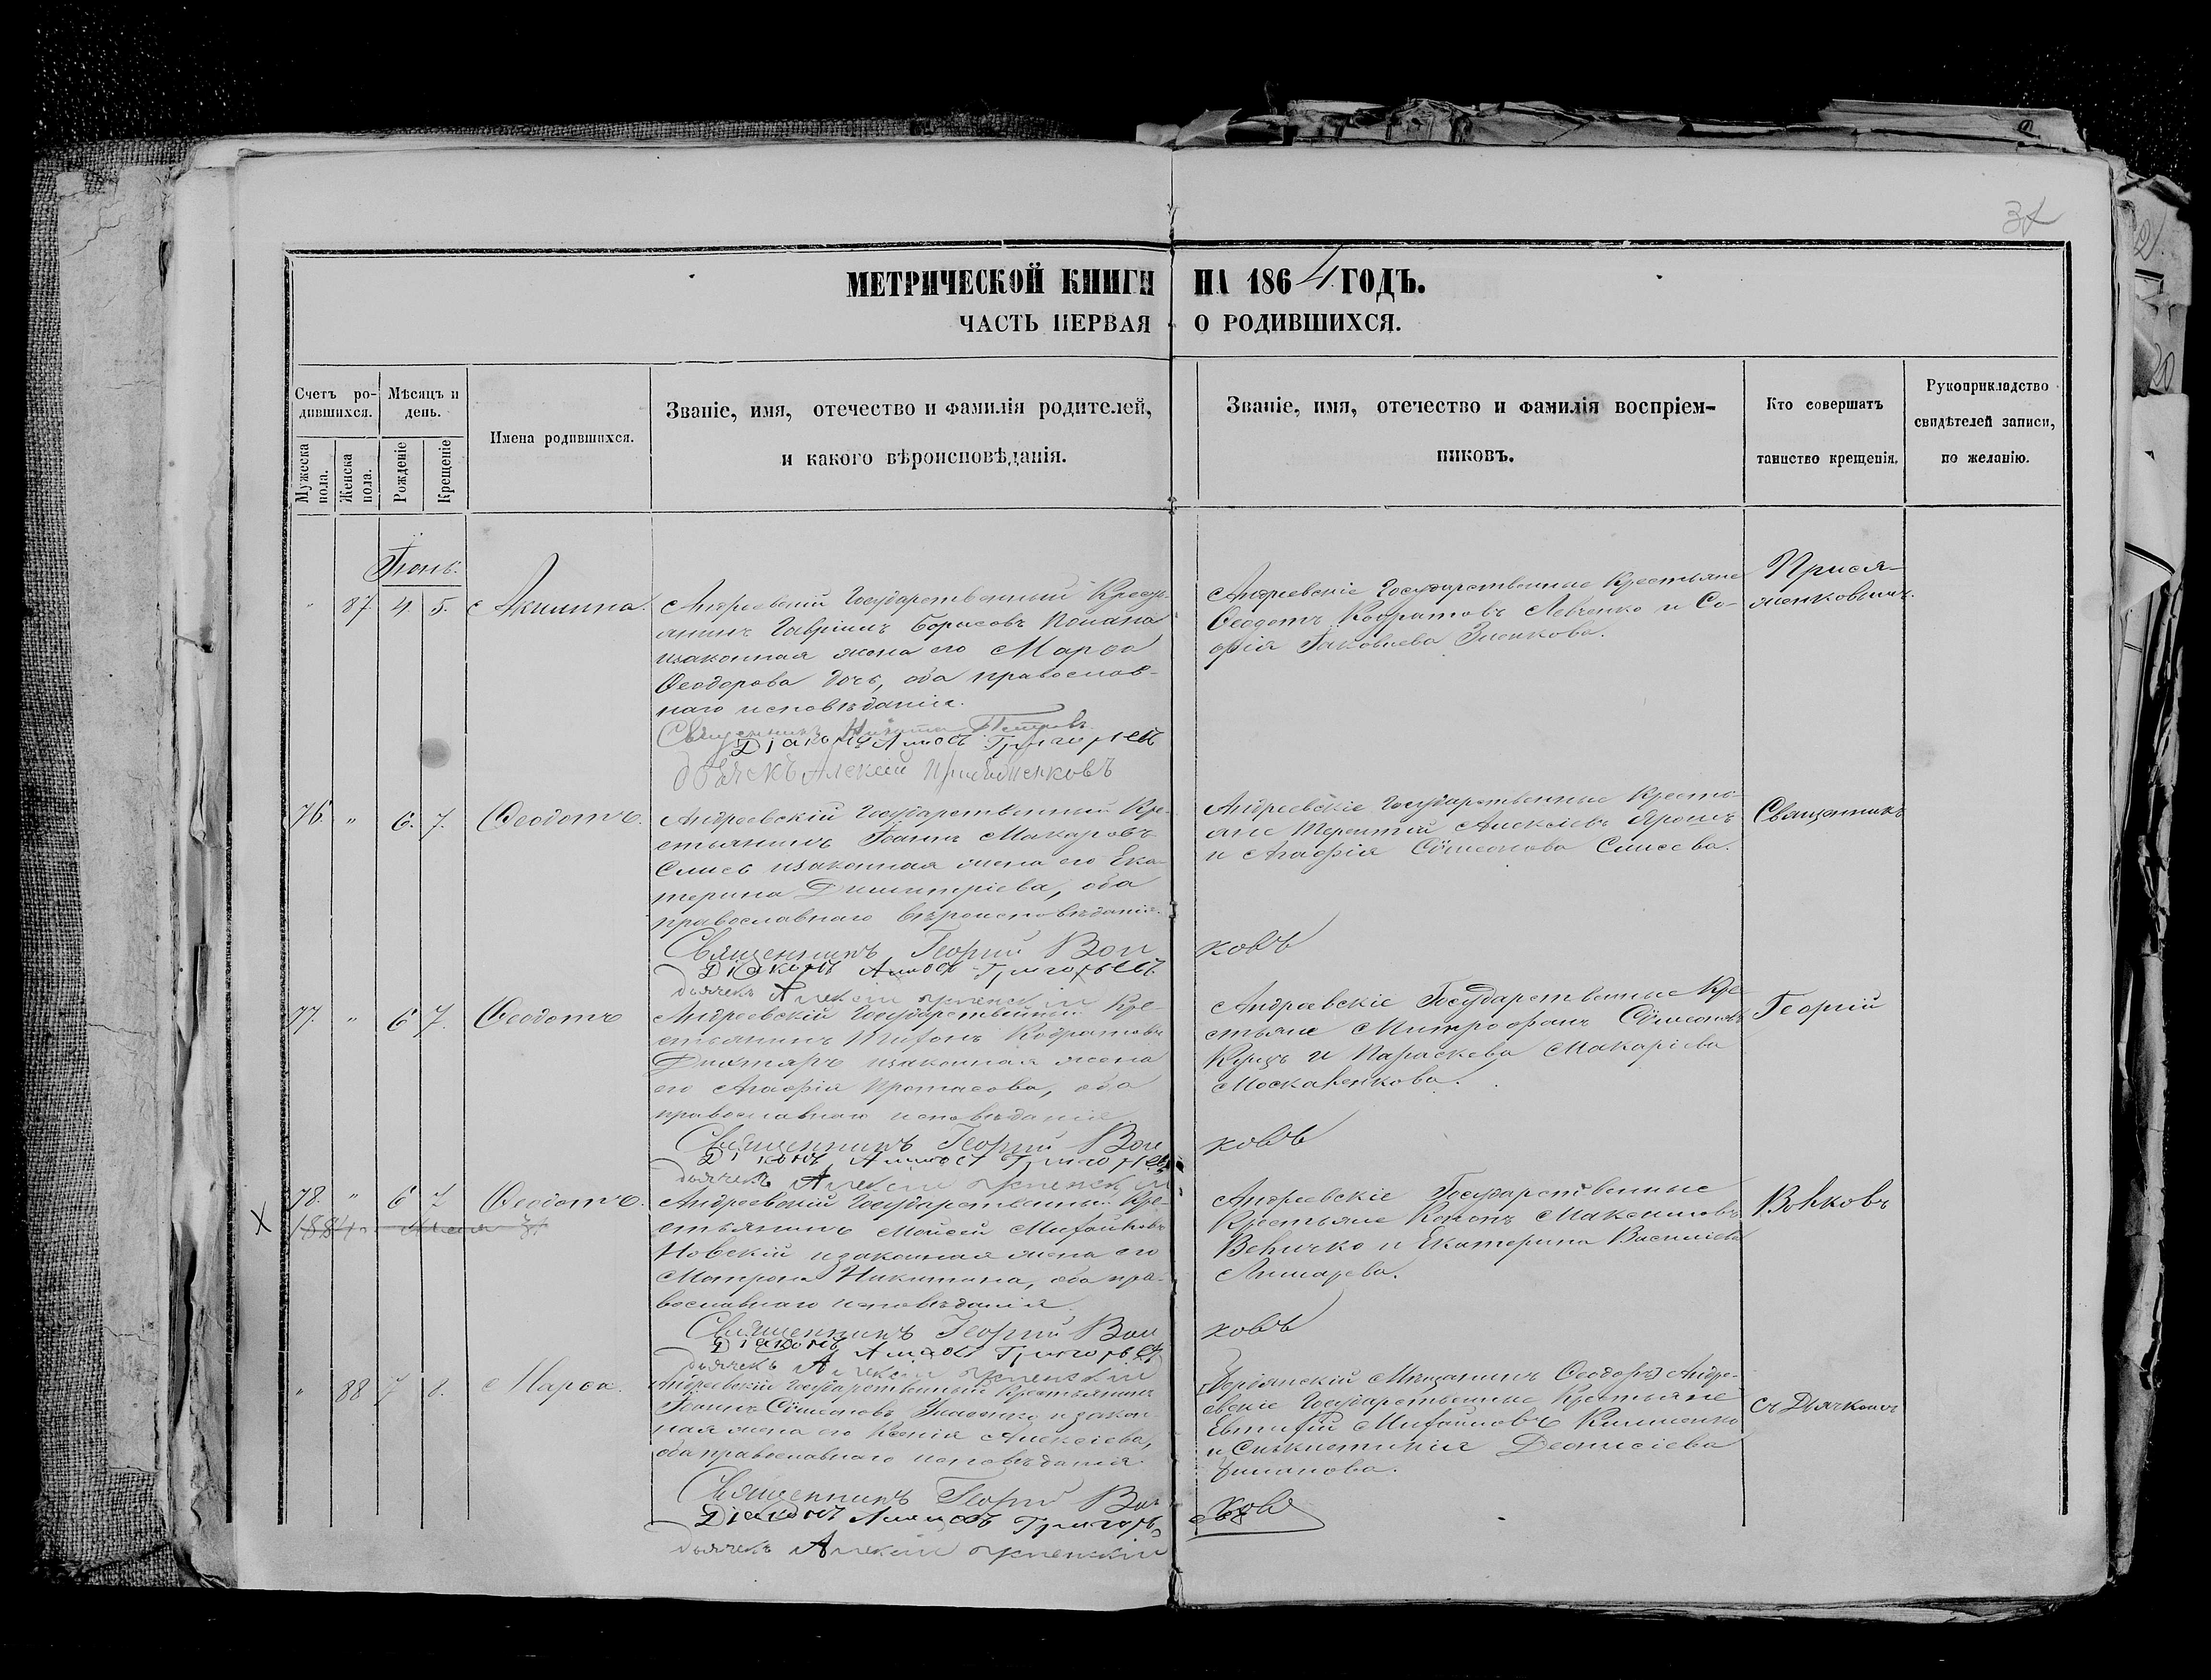 МЕТРИЧЕСКОЙ КНИГИ НА 1864 ГОДЪ.
ЧАСТЬ ПЕРВАЯ О РОДИВШИХСЯ.
Счетъ ро-
дившихся.
Мужеска
пола.
Женска
пола.
Мѣсяцъ и
день.
Рожденіе
Крещеніе
Имена родившихся.
Званіе, имя, отечество и фамилія родителей,
и какого вѣроисповѣданія.
Званіе, имя, отечество и фамилія воспріем-
никовъ.
Кто совершатъ
таинство крещенія.
Рукоприкладство
свидѣтелей записи,
по желанію.
Іюнь.
87. 4. 5. Акилина.
Андреевскій Государственный Кресть-
янинъ Гавріилъ Борисовъ
изаконная жена его Марѳа
Ѳеодорова дочь, оба православ-
наго исповѣданія.
Священникъ Никита Петровъ
Діаконъ Амосъ Григорьев
дьячекъ Алексій
Андреевскіе Государственные Крестьяне
Ѳеодотъ Кодратовъ Левченко и Со-
фія Іаковлева
Прися-
женковымъ.
76. " 6. 7. Ѳеодотъ.
Андреевскій Государственный Кре-
стьянинъ Іоаннъ Макаровъ
изаконная жена его Ека-
терина Димитріева, оба
православнаго вѣроисповѣданія.
Священникъ Георгій Вол
ковъ
Діаконъ Амосъ Григорьевъ
дьячекъ Алексій
Андреевскіе Государственные Кресть-
яне Терентій Алексіевъ
и Агафія Сѵмеонова
Священникъ
77. " 6 7. Ѳеодотъ
Андреевскій Государственный Кре-
стьянинъ Кодратовъ
изаконная жена
его Агафія Протасова, оба
православнаго исповѣданія
Священникъ Георгій Вол
ковъ
Амосъ
дьячекъ Алексій
Андреевскіе Государственные Кре-
стьяне Митрофанъ Сѵмеоновъ
и Параскева Макаріева
Москаленкова.
Георгій
78. " 6 7 Ѳеодотъ.
X
Андреевскій Государственный Кре-
стьянинъ Моисей Михайловъ
Новскій изаконная жена его
Матрона Никитина, оба пра-
вославнаго исповѣданія.
Священникъ Георгій Вол
ковъ
Діаконъ Амосъ Григорьев
дьячекъ Алексій
Андреевскіе Государственные
Крестьяне Кононъ Максимовъ
Величко и Екатерина Василіева
Волковъ
" 88 7 8. Марѳа.
Андреевскій Государственный Крестьянинъ
Іоаннъ Сѵмеоновъ изакон-
ная жена его Ксенія Алексіева,
оба православнаго исповѣданія.
Священникъ Георгій Вол
ковъ
Діаконъ Амосъ Григорь
евъ
дьячекъ Алексій
Бердянскій Мѣщанинъ Ѳеодоръ Андре-
евскіе Государственные Крестьяне
Евтихій Михайловъ
и Синклитикія Деонисіева
съ Дьячкомъ